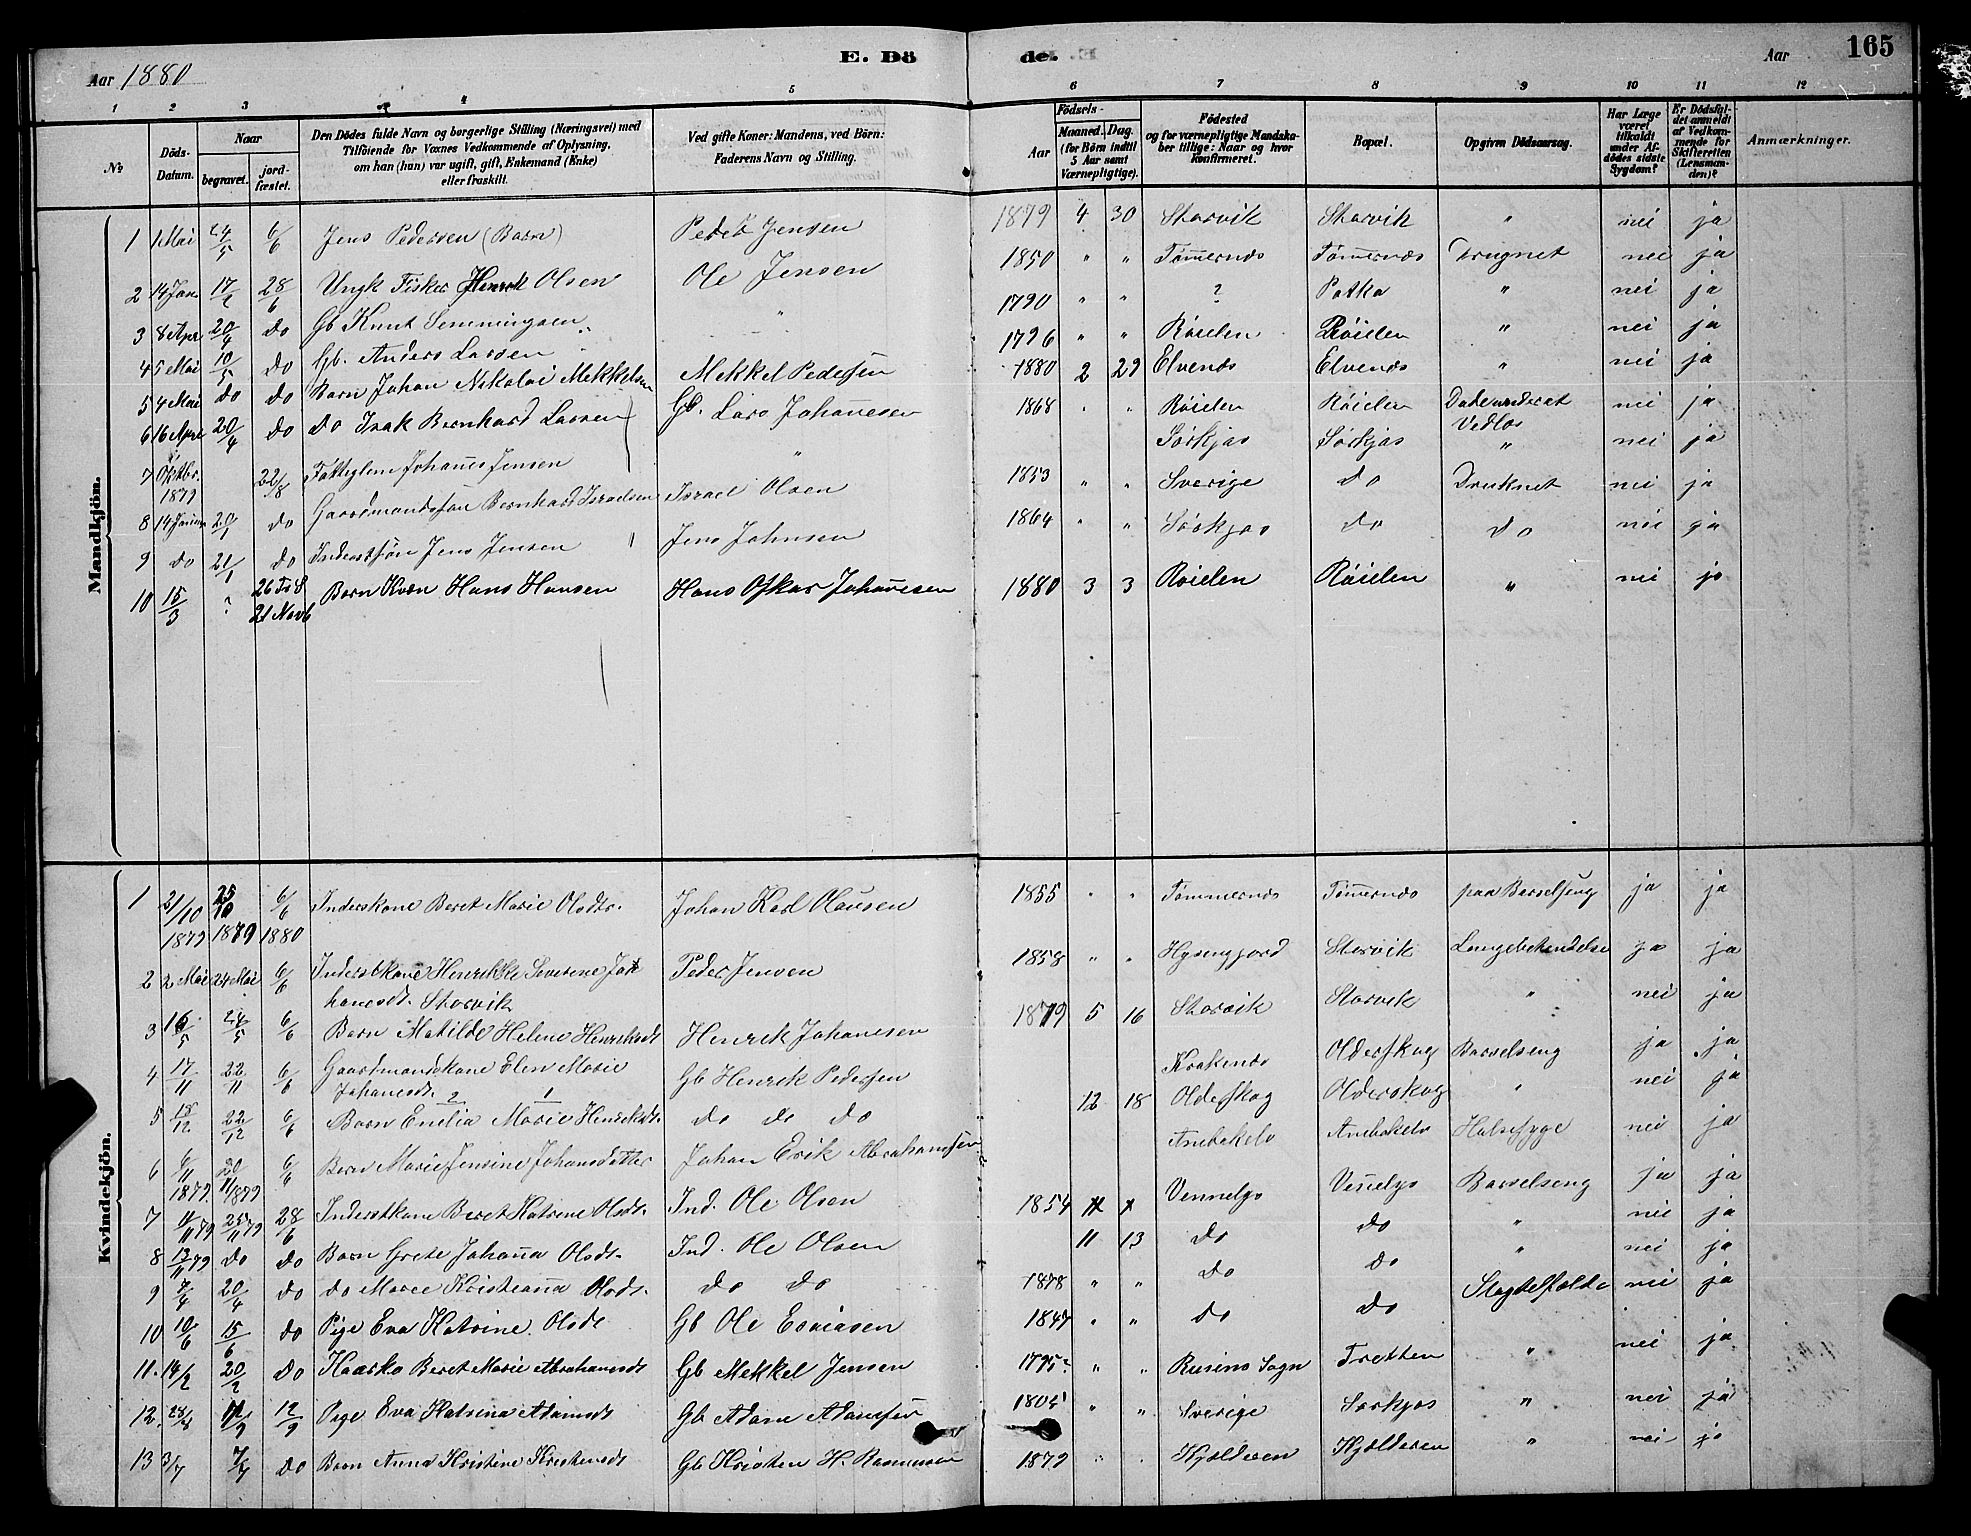 Aar 1880
E. Dö
de.
Aar
165
1 2 3 4 5 6 7 8 9 10 11 12
№
Döds-Datum.
Naar
begravet.
jord-fæstet.
Den Dödes fulde Navn og borgerlige Stilling (Næringsvei) med
Tilföiende for Voxnes Vedkommende af Oplysning,
om han (hun) var ugift, gift, Enkemand (Enke)
eller fraskilt.
Ved gifte Koner: Mandens, ved Börn:
Faderens Navn og Stilling.
Födsels-
Aar
Maaned. Dag.
(for Börn indtil
5 Aar samt
Værnepligtige).
Födested
og for værnepligtige Mandska-
ber tillige: Naar og hvor
konfirmeret.
Bopæl.
Opgiven Dödsaarsag.
Har Læge
været
tilkaldt
under Af-
dödes sidste
Sygdom?
Er Dödsfal-
det anmeldt
af Vedkom-
mende for
Skifteretten
(Lensman-
den)?
Anmærkninger.
Mandkjön.
1 1 Mai 24/5 6/6 Jens Pedersen (Barn) Peder Jensen 1879 4 30 Storvik Storvik " nei ja
2 14 Jan 17/2 28/6 Ungk Fisker Henrik Olsen Ole Jensen 1850 " " Tømernes Tømernes Drugnet nei ja
3 8 Apr 20/4 do Gb Knut Semmingsen " 1790 " " ? Potka " nei ja
4 5 Mai 10/5 do Gb. Anders Larsen 1796 " " Røielen Røielen " nei ja
5 4 Mai do do Barn Johan Nikolai Mekkelsen Mekkel Pedersen 1880 2 29 Elvenes Elvenes " nei ja
6 16 Apr 20/4 do do Isak Bernhard Larsen Gb. Lars Johanesen 1868 " " Røielen Røielen nei ja
7 Oktbr. 1879 22/8 Johanes Jensen " Sørkjos Sørkjos " nei ja
8 14 Januar 20/1 do Gaardmandssøn Bernhard Israelsen Israel Olsen 1853 " " Sverige do Druknet nei ja
9 do 21/1 do Inderstsøn Jens Jensen Jens Johnsen 1864 " " Sørkjos do do nei ja
10 15/3 ? 21 Novb Barn Kvæn Hans Hansen Hans Oskar Johanesen 1880 3 3 Røielen Røielen " nei ja
Kvindekjön.
1 21/10 1879 25/10 1879 6/6 1880 Inderskone Beret Marie Olsdtr. Johan Karl Olausen 1855 " " Tømmernes Tømernes paa Barselseng ja ja
2 2 Mai 24 Mai 6/6 Inderstkone Henrikke Severine Jo-
hanesdt. Storvik Peder Jensen 1858 " " Storvik Lungebetændelse ja ja
3 16/5 24/5 6/6 Barn Matilde Helene Henriksdt Henrik Johanesen 1879 5 16 Storvik Storvik " nei ja
4 17/11 22/11 6/6 Gaardmandskone Elen Marie
Johanesdt. Gb Henrik Pedersen Krakenes Olderskog Barselseng ja ja
5 18/12 22/12 6/6 Barn Emelia Marie Henriksdt. do do do 12 18 Olderskog Olderskog " nei ja
6 6/11 1879. 20/11 1879 6/6 Barn Marie Jensine Johansdatter Johan Erik Abrahamsen Halssyge nei ja
7 11/11 79 25/11 79 28/6 Inderstkone Beret Katrine Olsdt. Ind. Ole Olsen 1854 Vennelys Vennelys Barselseng ja ja
8 13/11 79 do do Barn Grete Johanna Olsdt. Ind. Ole Olsen 11 13 do do " nei ja
9 7/4 20/4 do do Maree Kristianna Olsdt. do do 1878 " " do do " nei ja
10 10/6 15/6 do Pige Eva Katrine Olsdt Gb Ole Esaiasen 1847 " " do do nei ja
11. 14/2 20/2 do Beret Marie Abrahamsdt Gb Mekkel Jensen 1795? " " Sogn Tretten " nei ja
12. 28/8 11/9 12/9 Pige Eva Katrina Adamsdt Gb Adam Adamsen 1805 " " Sverige Sørkjos " nei ja
13 3/7 7/7 do Barn Anna Kristine Kristensdt Gb Kristen H. Rasmussen 1879 " " Kjelderen Kjelderen " nei ja